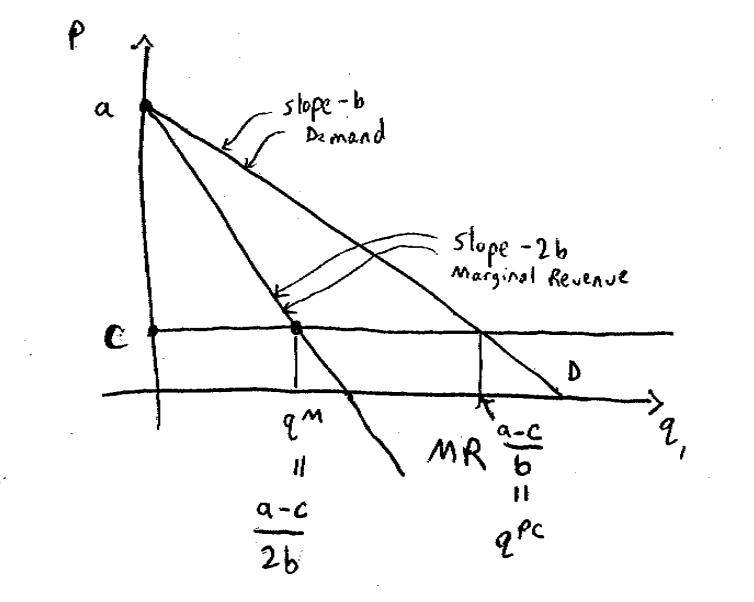 P
a
slope -b
Demand
slope -2b
Marginal Revenue
C
D
q^M
q₁
MR
a-c
b
=
q^PC
=
a-c
2b